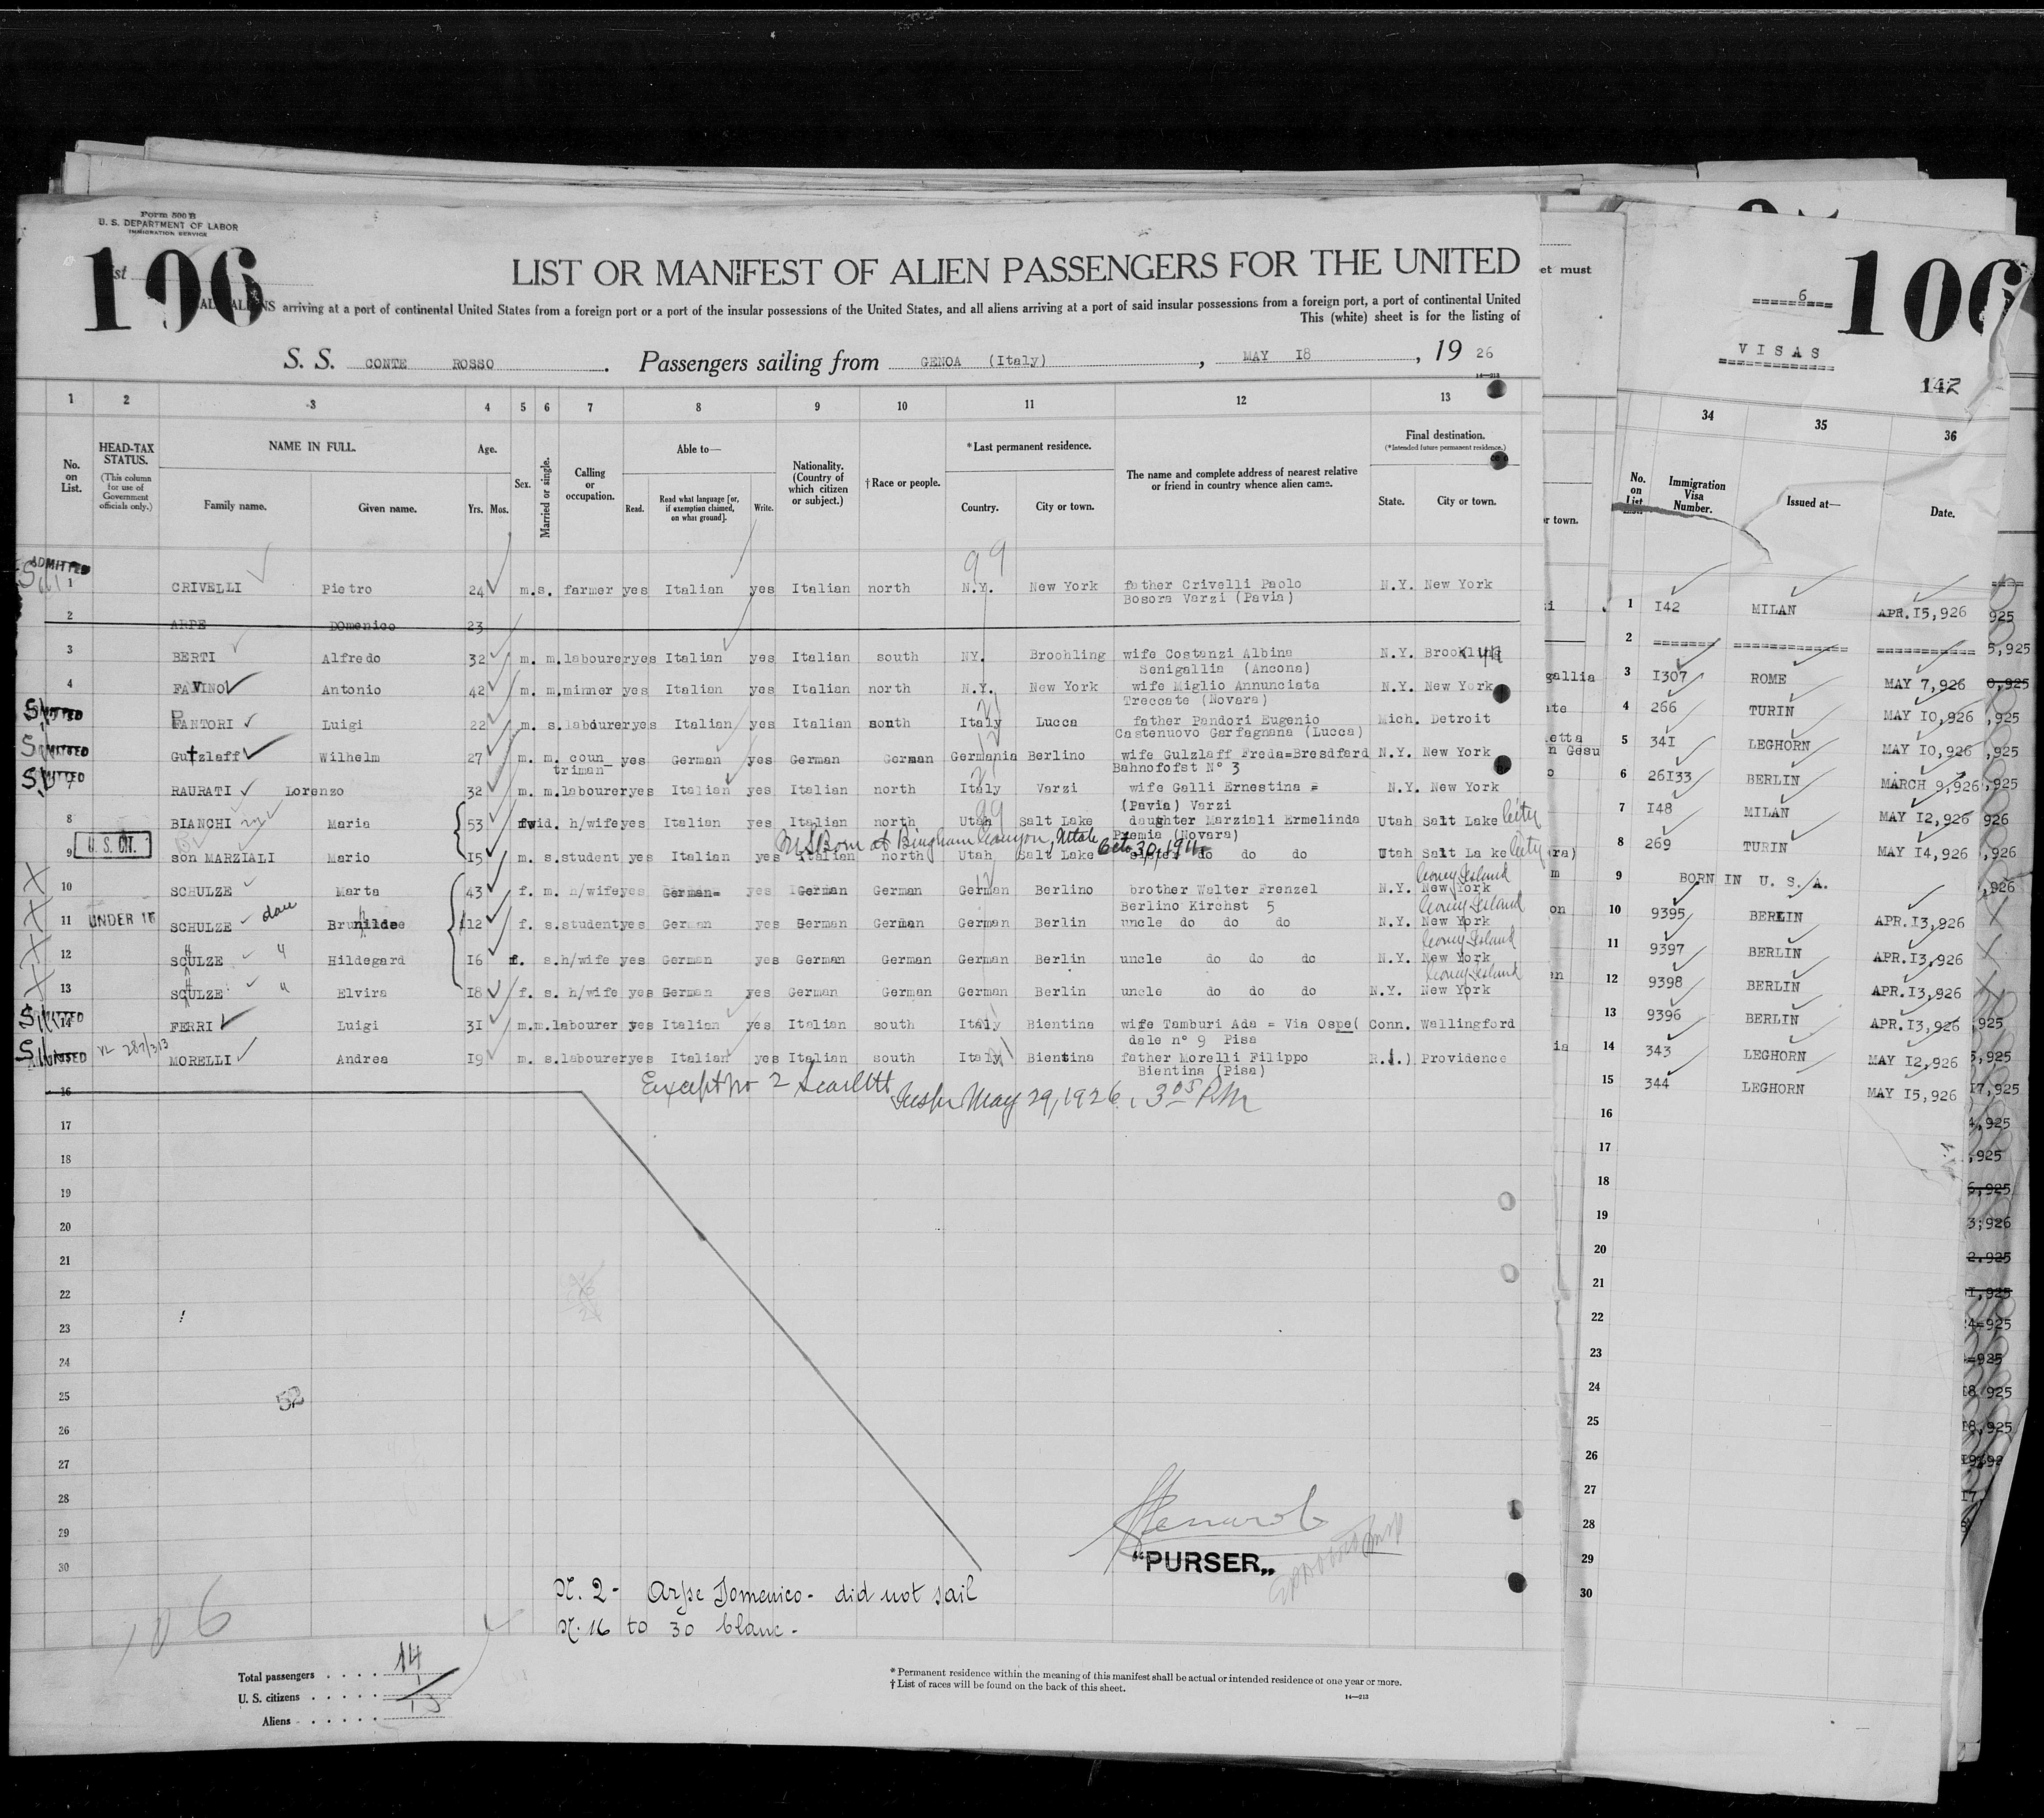 Form 500 B
U. S. DEPARTMENT OF LABOR
IMMIGRATION SERVICE
106
List
LIST OR MANIFEST OF ALIEN PASSENGERS FOR THE UNITED
ALL ALIENS arriving at a port of continental United States from a foreign port or a port of the insular possessions of the United States, and all aliens arriving at a port of said insular possessions from a foreign port, a port of continental United
This (white) sheet is for the listing of
S. S. CONTE ROSSO. Passengers sailing from GENOA (Italy), MAY 18, 19 26
14—213
1 2 3 4 5 6 7 8 9 10 11 12 13
No. on List.
HEAD-TAX STATUS.
(This column for use of Government officials only.)
NAME IN FULL.
Family name. Given name.
Age.
Yrs. Mos.
Sex.
Married or single.
Calling or occupation.
Able to—
Read. Read what language [or, if exemption claimed, on what ground]. Write.
Nationality. (Country of which citizen or subject.)
†Race or people.
*Last permanent residence.
Country. City or town.
The name and complete address of nearest relative or friend in country whence alien came.
Final destination.
(*Intended future permanent residence.)
State. City or town.
99
ADMITTED 1 CRIVELLI Pietro 24 m. s. farmer yes Italian yes Italian north N.Y. New York father Crivelli Paolo N.Y. New York
Bosora Varzi (Pavia)
2 ARPE Domenico 23
3 BERTI Alfredo 32 m. m. labourer yes Italian yes Italian south NY. Broohling wife Costanzi Albina N.Y. Brooklyn
Senigallia (Ancona)
4 FAVINO Antonio 42 m. m. minner yes Italian yes Italian north N.Y. New York wife Miglio Annunciata N.Y. New York
Treccate (Novara)
PANTORI Luigi 22 m. s. labourer yes Italian yes Italian south Italy Lucca father Pandori Eugenio Mich. Detroit
Castenuovo Garfagnana (Lucca)
Gutzlaff Wilhelm 27 m. m. coun_ yes German yes German German Germania Berlino wife Gulzlaff Freda=Bresdfard N.Y. New York
triman Bahnofofst Nº 3
7 RAURATI Lorenzo 32 m. m. labourer yes Italian yes Italian north Italy Varzi wife Galli Ernestina = N.Y. New York
(Pavia) Varzi
8 BIANCHI Maria 53 fwid. h/wife yes Italian yes Italian north Utah Salt Lake daughter Marziali Ermelinda Utah Salt Lake City
Premia (Novara)
U. S. CIT.
US Born at Bingham Canyon, Utah Octo 30, 1911
9 son MARZIALI Mario 15 m. s. student yes Italian yes Italian north Utah Salt Lake sister do do do Utah Salt La ke City
Coney Island
10 SCHULZE Marta 43 f. m. h/wife yes German= yes German German German Berlino brother Welter Frenzel N.Y. New York
Berlino Kirchst 5
Coney Island
11 UNDER 16 SCHULZE dau Brunhilde 12 f. s. student yes German yes German German German Berlin uncle do do do N.Y. New York
Coney Island
12 SCHULZE " Hildegard 16 f. s. h/wife yes German yes German German German Berlin uncle do do do N.Y. New York
Coney Island
13 SCHULZE " Elvira 18 f. s. h/wife yes German yes German German German Berlin uncle do do do N.Y. New York
14 FERRI Luigi 31 m. m. labourer yes Italian yes Italian south Italy Bientina wife Tamburi Ada = Via Ospe( Conn. Wallingford
dale n° 9 Pisa
MORELLI Andrea 19 m. s. labourer yes Italian yes Italian south Italy Bientina father Morelli Filippo R.I.) Providence
Bientina (Pisa)
Except no 2
Inspr May 29, 1926. 3 05 P.M
16
17
18
19
20
21
22
23
24
25
26
27
28
29
30
52
"PURSER„
N. 2 - Arpe Domenico - did not sail
N. 16 to 30 blanc -
106
Total passengers . . . . 14
U. S. citizens . . . . . 1
Aliens . . . . . . 13
* Permanent residence within the meaning of this manifest shall be actual or intended residence of one year or more.
† List of races will be found on the back of this sheet.
14—213
et must
r town.
6
106
VISAS
142
34 35 36
No. on List Immigration Visa Number. Issued at— Date.
1 142 MILAN APR.15,926
2
3 1307 ROME MAY 7,926
4 266 TURIN MAY 10,926
5 341 LEGHORN MAY 10,926
6 26133 BERLIN MARCH 9,926
7 148 MILAN MAY 12,926
8 269 TURIN MAY 14,926
9 BORN IN U. S. A.
10 9395 BERLIN APR.13,926
11 9397 BERLIN APR.13,926
12 9398 BERLIN APR.13,926
13 9396 BERLIN APR.13,926
14 343 LEGHORN MAY 12,926
15 344 LEGHORN MAY 15,926
16
17
18
19
20
21
22
23
24
25
26
27
28
29
30